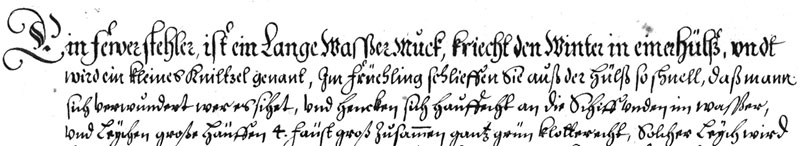 Ein fewerstehler, ist ein Lange Wasser Muck, kriecht den Winter in einer hülß, vndt
wird ein kleines Kniltzel genant, Im früchling schlieffen Sie auß der hülß so schnell, daß mann
sich verwundert wer es sihet, vnd hencken sich hauffecht an die Schiff vnden im wasser,
vnd Leychen große häuffen 4. faust groß Zusamen gantz grün klotterecht, Solcher Leych wird